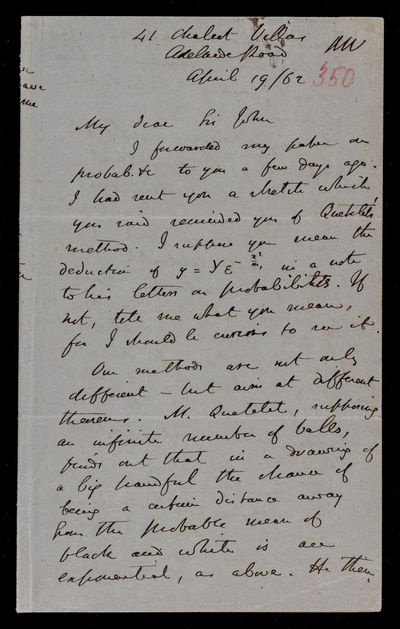 41 Chalcot Villas
Adelaide Road
April 19/62
350
My dear Sir John
I forwarded my paper on
probab. &c to you a few days ago.
I had sent you a sketch which
you said reminded you of Quetelet's
method. I suppose you mean the
deduction of y = Yε^{-x²/m}, in a note
to his letters on probabilities. If
not, tell me what you mean,
for I should be curious to see it.
Our methods are not only
different – but aim at different
theorems. M. Quetelet, supposing
an infinite number of balls,
finds out that in a drawing of
a big handful the chance of
being a certain distance away
from the probable mean of
black and white is an
exponential, as above. He then